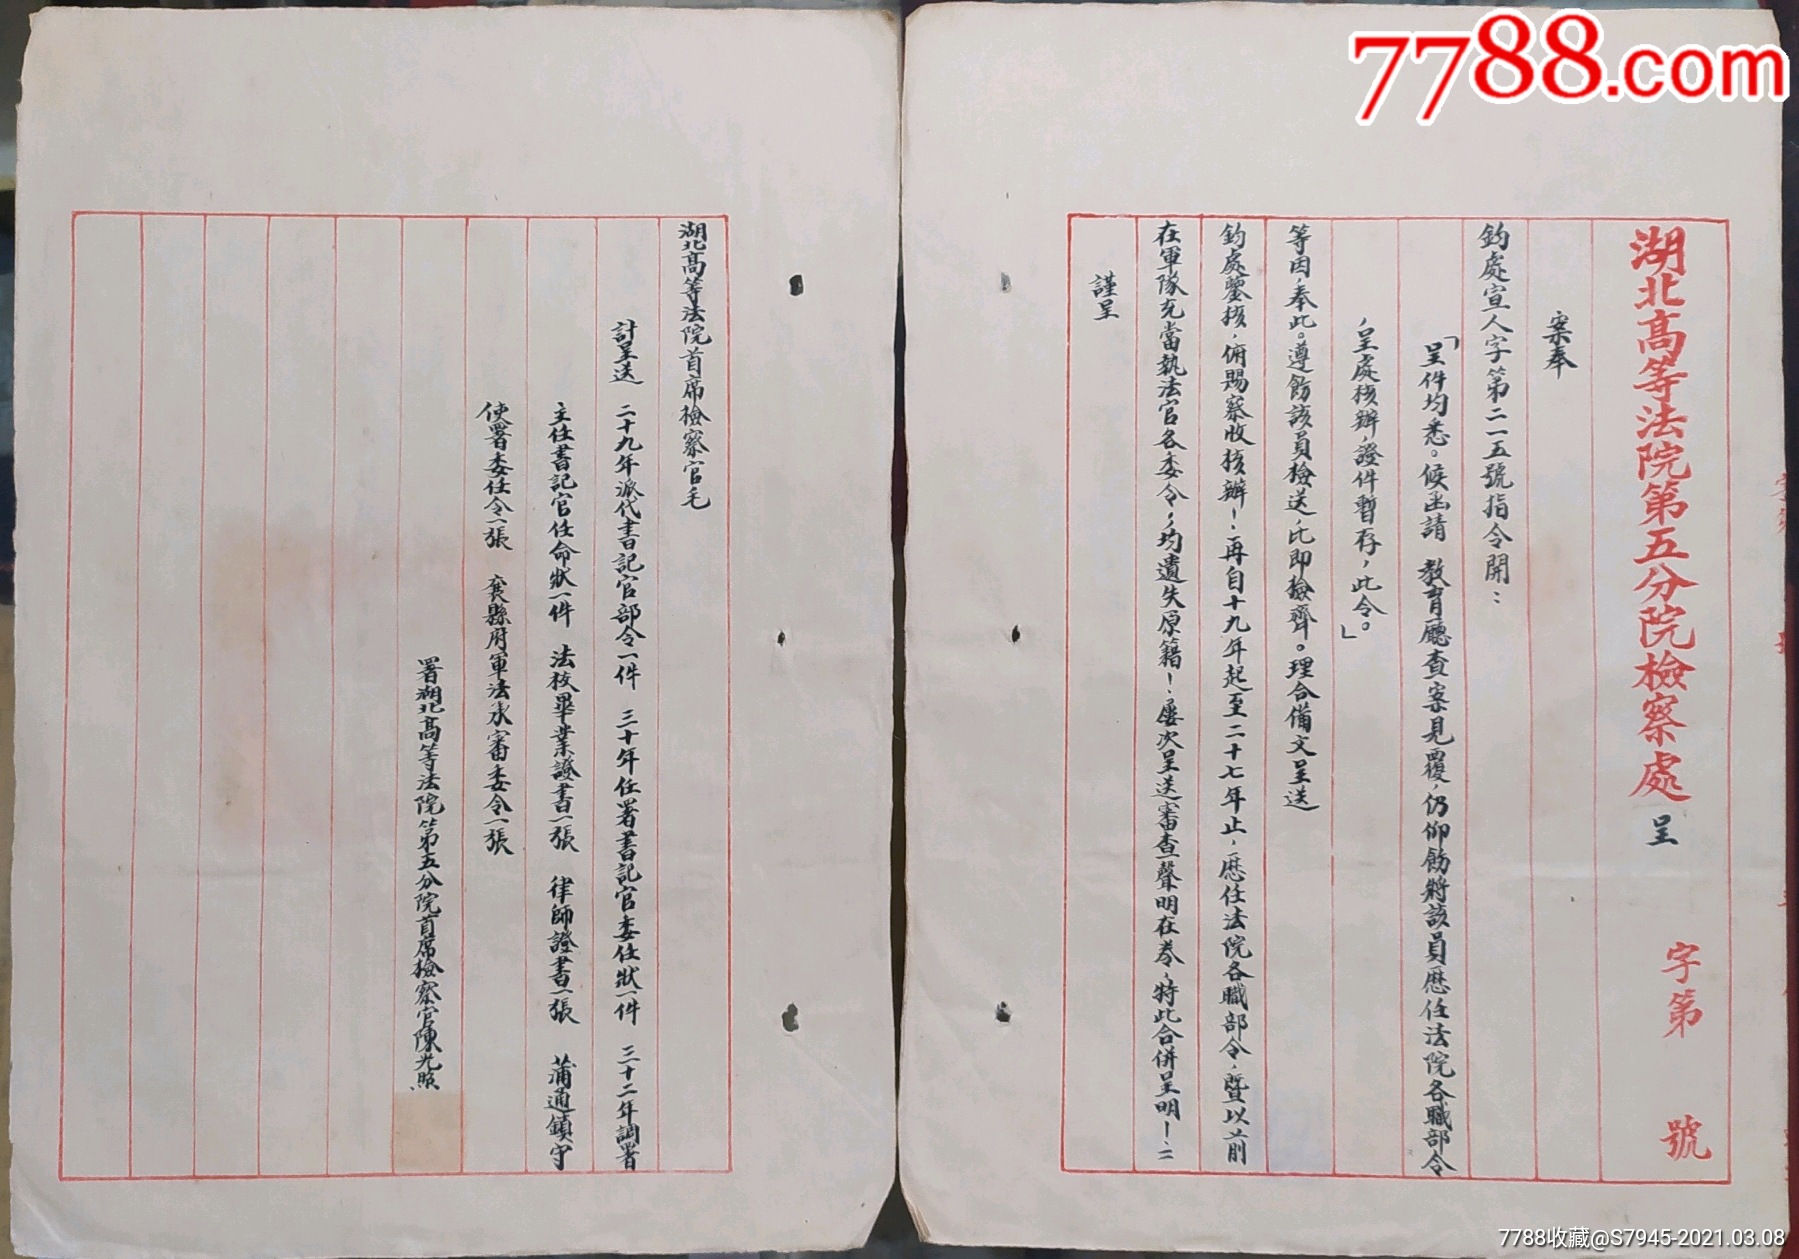 7788.com
湖北高等法院第五分院檢察處 呈 字第 號
案奉
鈞處宣人字第二一五號指令開：
「呈件均悉。候函請 教育廳查案見覆，仍仰飭將該員歷任法院各職部令
，呈處核辦，證件暫存，此令。」
等因，奉此。遵飭該員檢送，比即檢齊。理合備文呈送
鈞處鑒核，俯賜察收核辦！再自十九年起至二十七年止，歷任法院各職部令，暨以前
在軍隊充當執法官各委令，均遺失原籍！屢次呈送審查聲明在卷，特此合併呈明！：：
謹呈
湖北高等法院首席檢察官毛
計呈送 二十九年派代書記官部令一件 三十年任署書記官委任狀一件 三十二年調署
主任書記官任命狀一件 法校畢業證書一張 律師證書一張 蒲通鎮守
使署委任令一張 襄縣府軍法承審委令一張
署湖北高等法院第五分院首席檢察官陳光照
7788收藏@S7945-2021.03.08